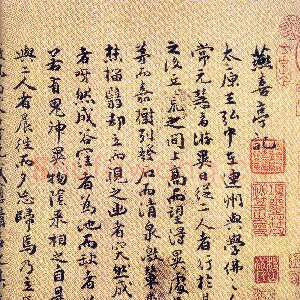 燕喜亭記
太原王弘中在連州與學佛
常元慧者游異日從二人者行於
之後丘荒之間上高而望得異處
茅而嘉樹列發石而清泉激輦
椔翳却立而視之出者突然成
者呀然成谷窪者為池而缺者
若有鬼神異物陰來相之自是
與二人者晨往而夕忘歸焉乃立